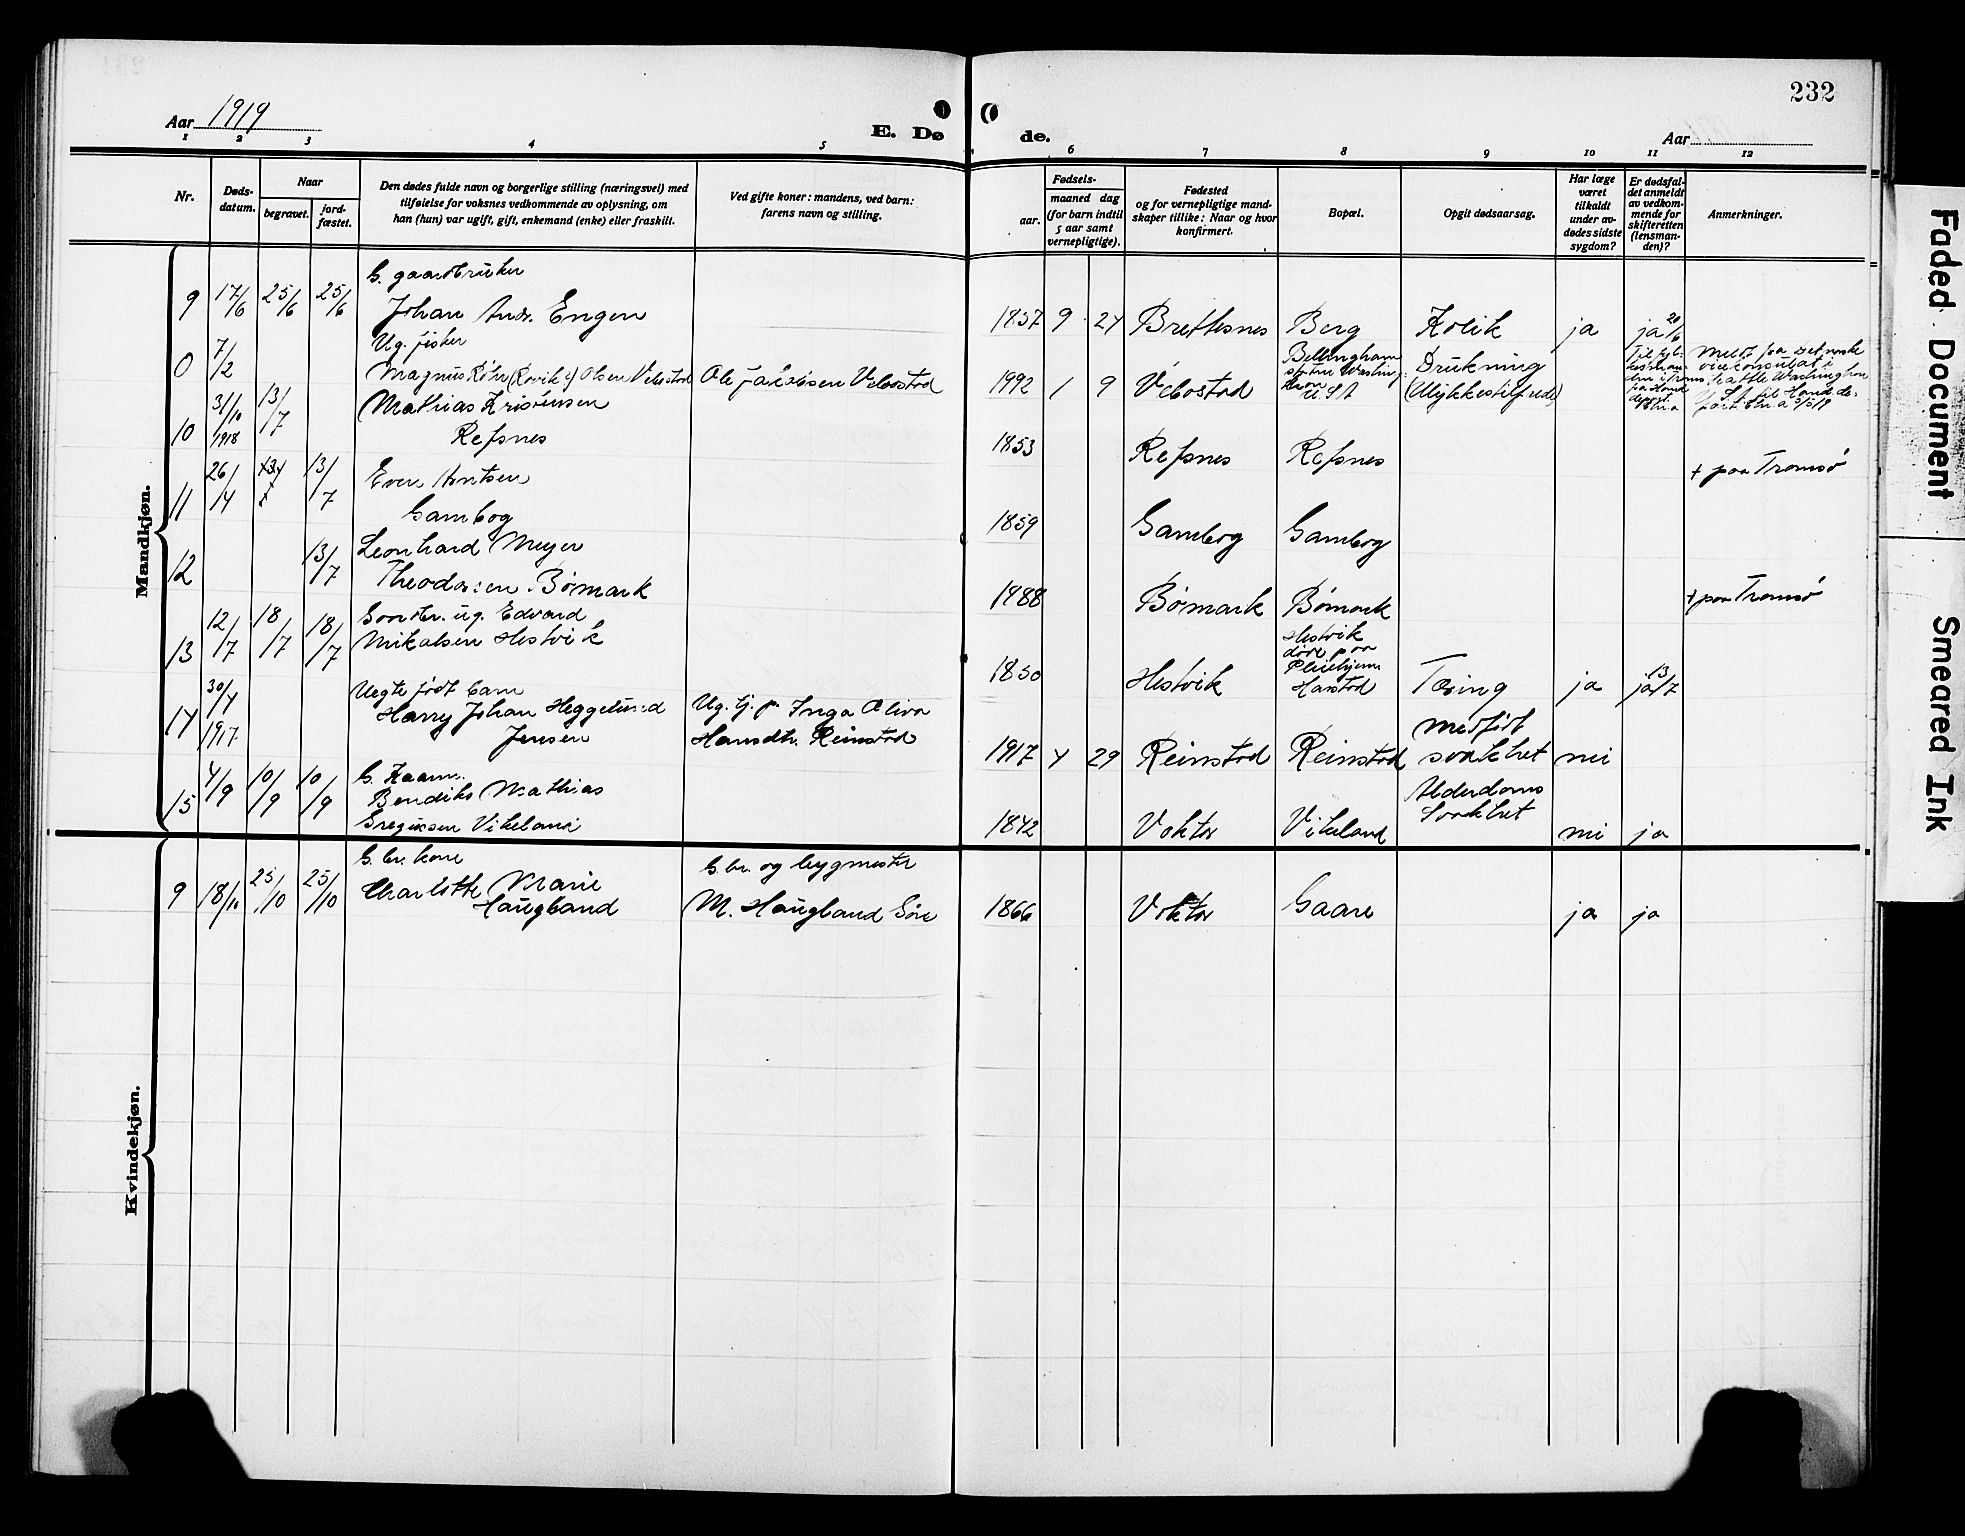 232
Aar 1919
E. Dø de.
Aar
1 2 3 4 5 6 7 8 9 10 11 12
Nr.
Døds-
datum.
Naar
begravet.
jord-
fæstet.
Den dødes fulde navn og borgerlige stilling (næringsvei) med
tilføielse for voksnes vedkommende av oplysning, om
han (hun) var ugift, gift, enkemand (enke) eller fraskilt.
Ved gifte koner: mandens, ved barn:
farens navn og stilling.
Fødsels-
aar.
maaned dag
(for barn indtil
5 aar samt
vernepligtige).
Fødested
og for vernepligtige mand-
skaper tillike: Naar og hvor
konfirmert.
Bopæl.
Opgit dødsaarsag.
Har læge
været
tilkaldt
under av-
dødes sidste
sygdom?
Er dødsfal-
det anmeldt
av vedkom-
mende for
skifteretten
(lensman-
den)?
Anmerkninger.
Mandkjøn.
G. gaardbruker
9 17/6 25/6 25/6 Johan Andr. Engen 1857 9 24 Brettesnes Berg Kolik ja ja 20/6
Ug. fisker
0 7/2 Magnus Olsen Vebostad Ole Jakobsen Vebostad 1992 1 9 Vebostad Bellingham U.S.A Drukning
(Ulykkestilfælde)
Meldt fra det norske
vicekonsulat i
Seattle Washington
10 31/10 1918 13/7 Mathias Kristensen
Refsnes 1853 Refsnes Refsnes
+ paa Tromsø
11 26/4 13/7 Even Arntsen
Gambog 1859 Gambog Gambog
12 13/7 Leonhard Meyer
Theodorsen Bømark 1888 Bømark Bømark + paa Tromsø
13 12/7 18/7 18/7 Gaardbr. ug. Edvard
Mikalsen Hestvik 1850 Hestvik Hestvik
døde paa
Pleiehjem
Harstad Tæring ja ja 13/7
14 30/4 1917 Uegte født barn
Harry Johan Heggelund
Jensen Ug. tj. p. Inga Oliva
Hansdtr. Reinstad 1917 4 29 Reinstad Reinstad Medfødt
svakhet nei
15 4/9 10/9 10/9 G. Kaarm.
Bendiks Mathias
Gregusen Vikeland 1842 Voktor Vikeland Alderdoms
svakhet nei ja
Kvindekjøn.
G.br. kone
9 18/10 25/10 25/10 Charlotte Marie
Haugland G.br. og bygmester
M. Haugland Söre 1866 Voktor Gaare ja ja
Faded Document
Smeared Ink